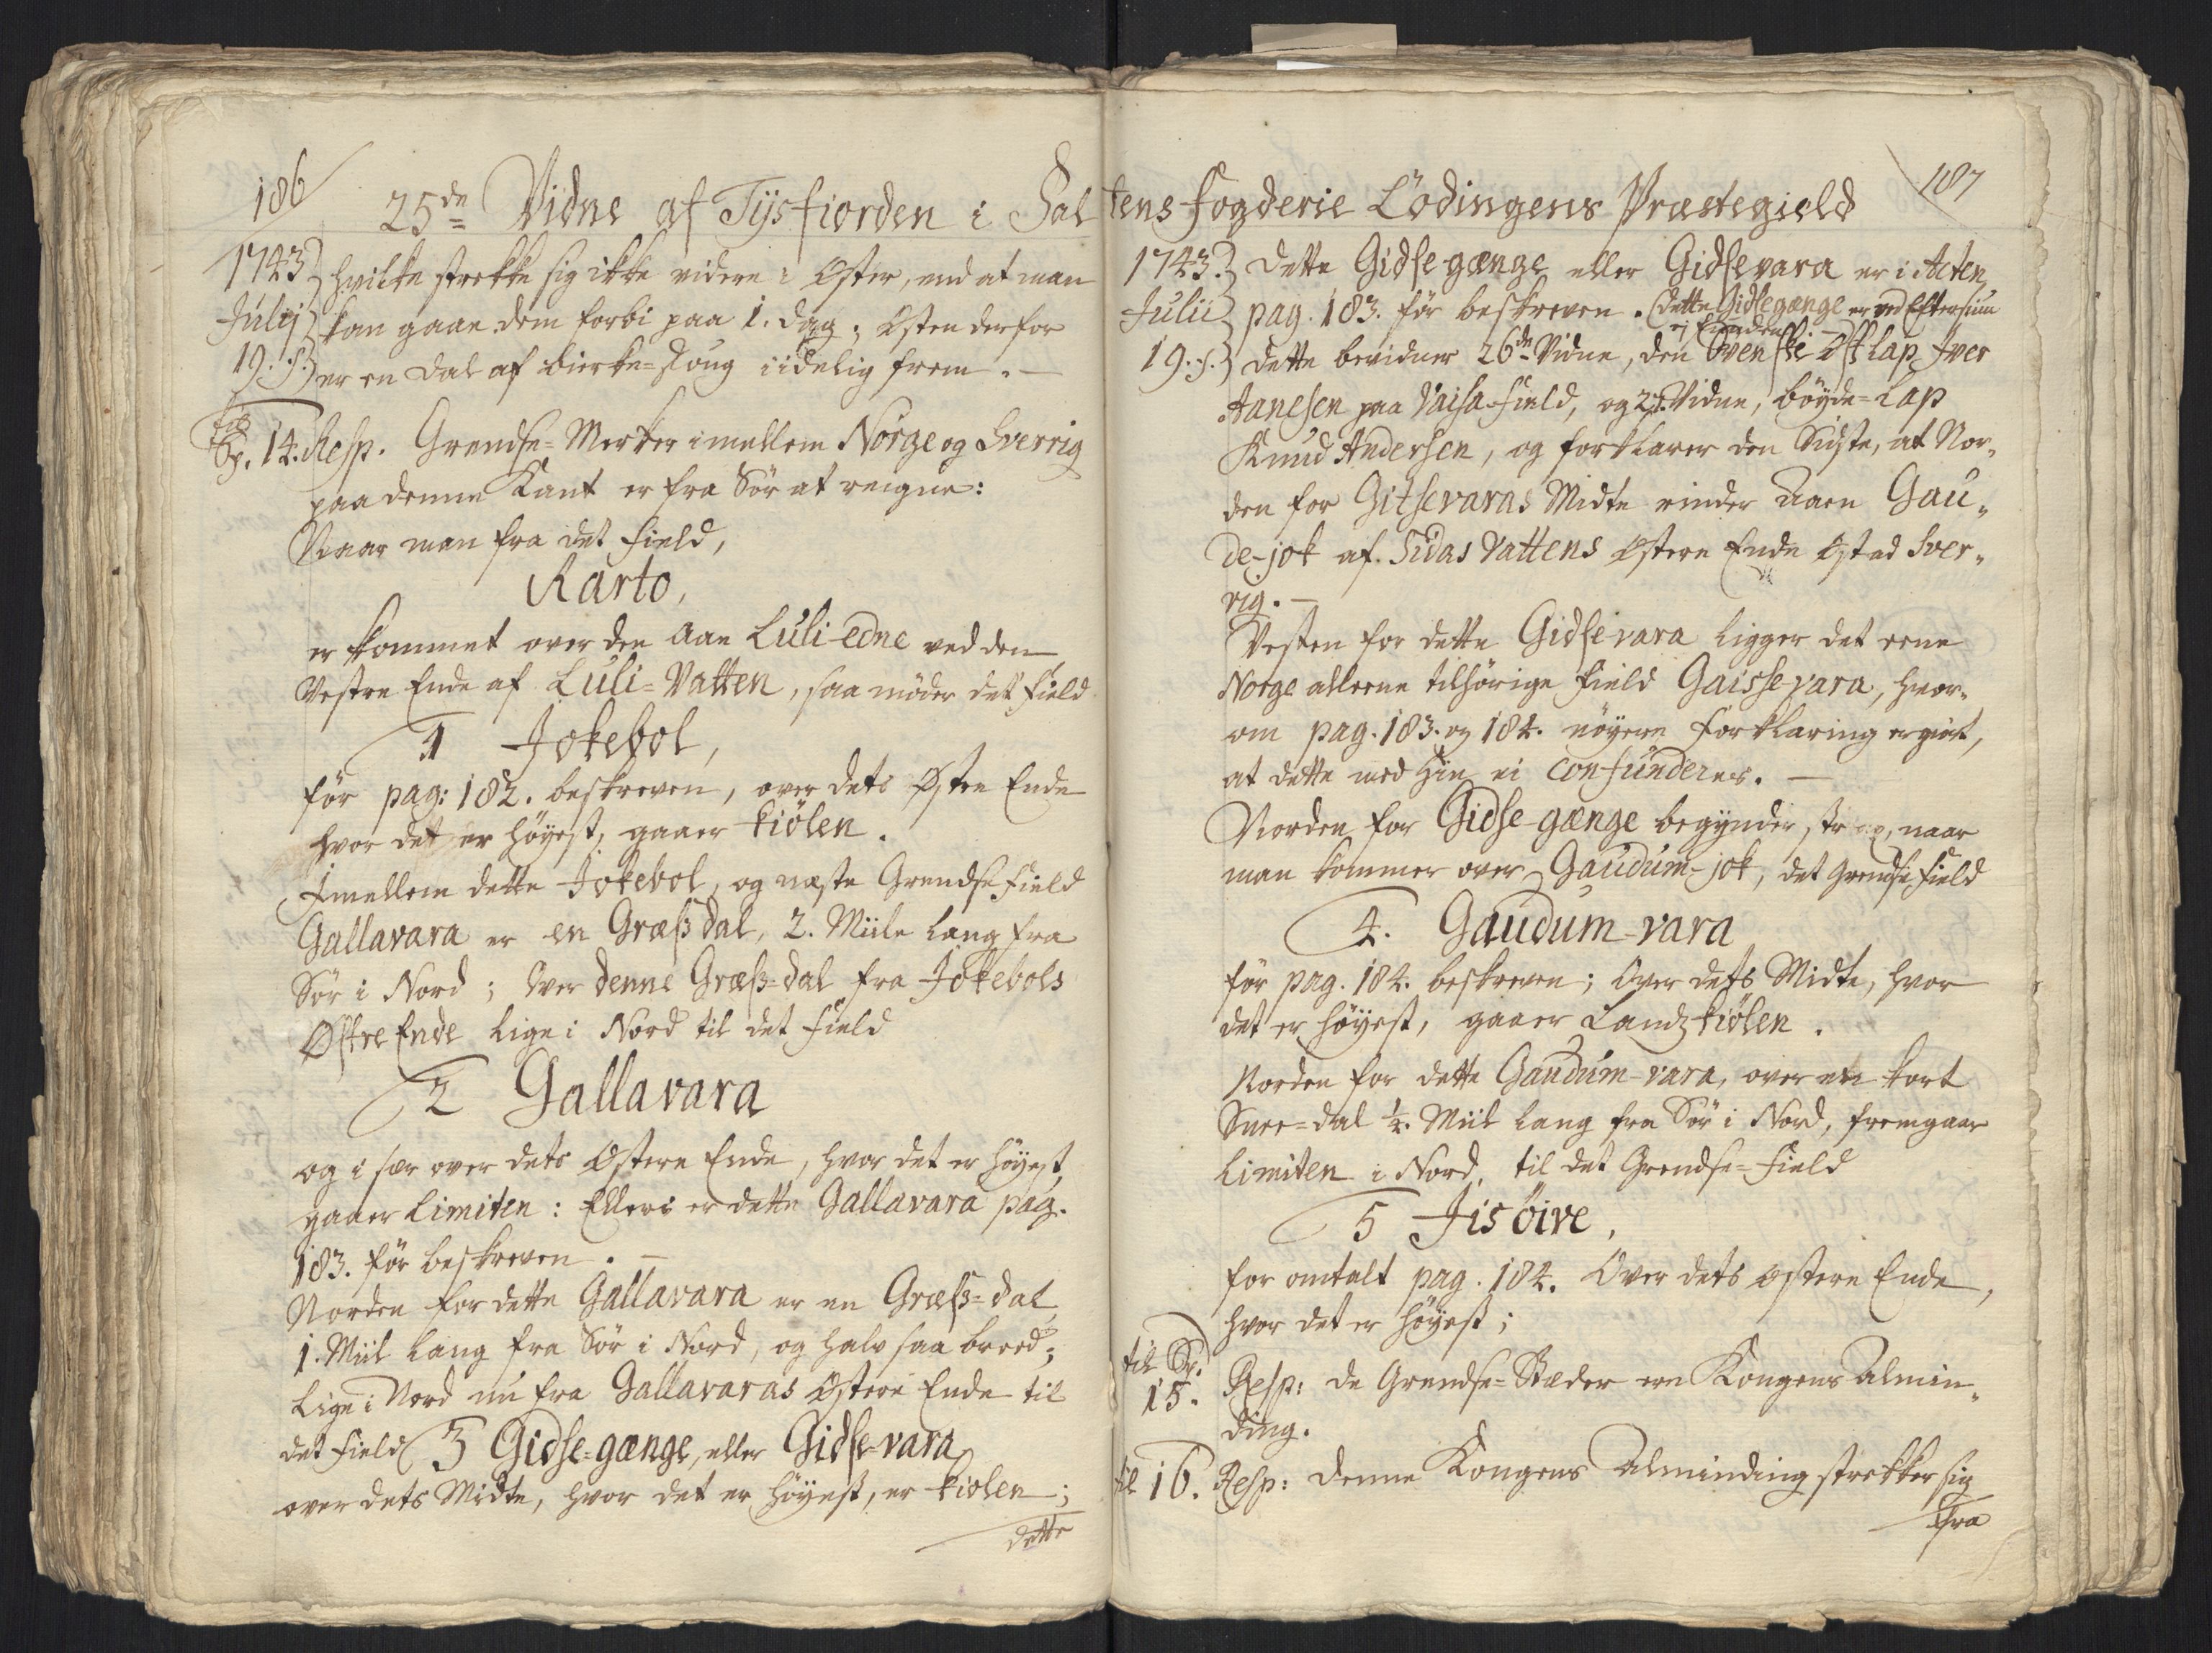 186
25de Vidne af Tysfiorden i Sal
1743 hvilke strekke sig ikke videre i Öster, end at man
Julij kan gaae dem forbi paa 1. dag; Östen derfor
19. s. er en dal af birke-skoug iidelig frem. —
til
Sp. 14. Resp. Grendse-Merker imellem Norge og Sverrig
paa denne Kant er fra Sör at reigne:
Naar man fra det Field,
Rarto,
er kommet over den Aae Luli-edne ved den
Vestre Ende af Luli-Vatten, saa möder det Field
1 Jokebol,
för pag: 182. beskreven, over dets Östre Ende
hvor det er höyest, gaaer kiölen.
Imellem dette Jokebol, og næste Grendse Field
Gallavara er en Græß dal, 2. Miile lang fra
Sör i Nord; Over denne Græß-dal fra Jokebols
Östre Ende lige i Nord til det Field
2 Gallavara
og i sær over dets Östere Ende, hvor det er höyest,
gaaer Limiten: Ellers er dette Gallavara pag.
183. för beskreven. —
Norden for dette Gallavara er en Græß-dal
1. Miil lang fra Sör i Nord, og halv saa breed;
Lige i Nord nu fra Gallavaras Östere Ende til
det Field 3 Gidse-gænge, eller Gidse-vara
over dets Midte, hvor det er höyest, er kiölen;
dette
187
tens Fogderie Lödingens Præstegield
1743. Dette Gidse-gænge eller Gidsevara er i Acten
Julii pag. 183. för beskreven. (dette Gidsegænge er ved Eftersiun
ej
19. s. Dette bevidner 26de Vidne, den Svenske Öst lap Iver
Aanesen paa Vaisa-field, og 27. Vidne, böyde-Lap
Knud Andersen, og forklarer den Sidste, at Nor-
den for Gitsevaras Midte rinder Aaen Gau-
de-jok af Sidas Vattens Östere Ende Öst ad Sver-
rig. —
Vesten for dette Gidse-vara ligger det eene
Norge alleene tilhörige Field Gaissevara, hvor-
om pag. 183. og 184. nöyere Forklaring er giort,
at dette med hin ei confunderes. —
Norden for Gidse-gænge begynder strax, naar
man kommer over Gaudum-jok, det Grendse Field
4. Gaudum-vara
för pag. 184. beskreven; Over dets Midte, hvor
det er höyest, gaaer Landz kiölen.
Norden for dette Gaudum-vara, over en kort
Snee-dal ¼. Miil lang fra Sör i Nord, fremgaar
Limiten i Nord, til det Grendse-Field
5 Jisöive,
for omtalt pag. 184. Over dets östere Ende,
hvor det er höyest;
til Sp.
15. Resp: De Grendse-Stæder ere Kongens Almin-
ding.
til 16. Resp: Denne Kongens Alminding strekker sig
fra